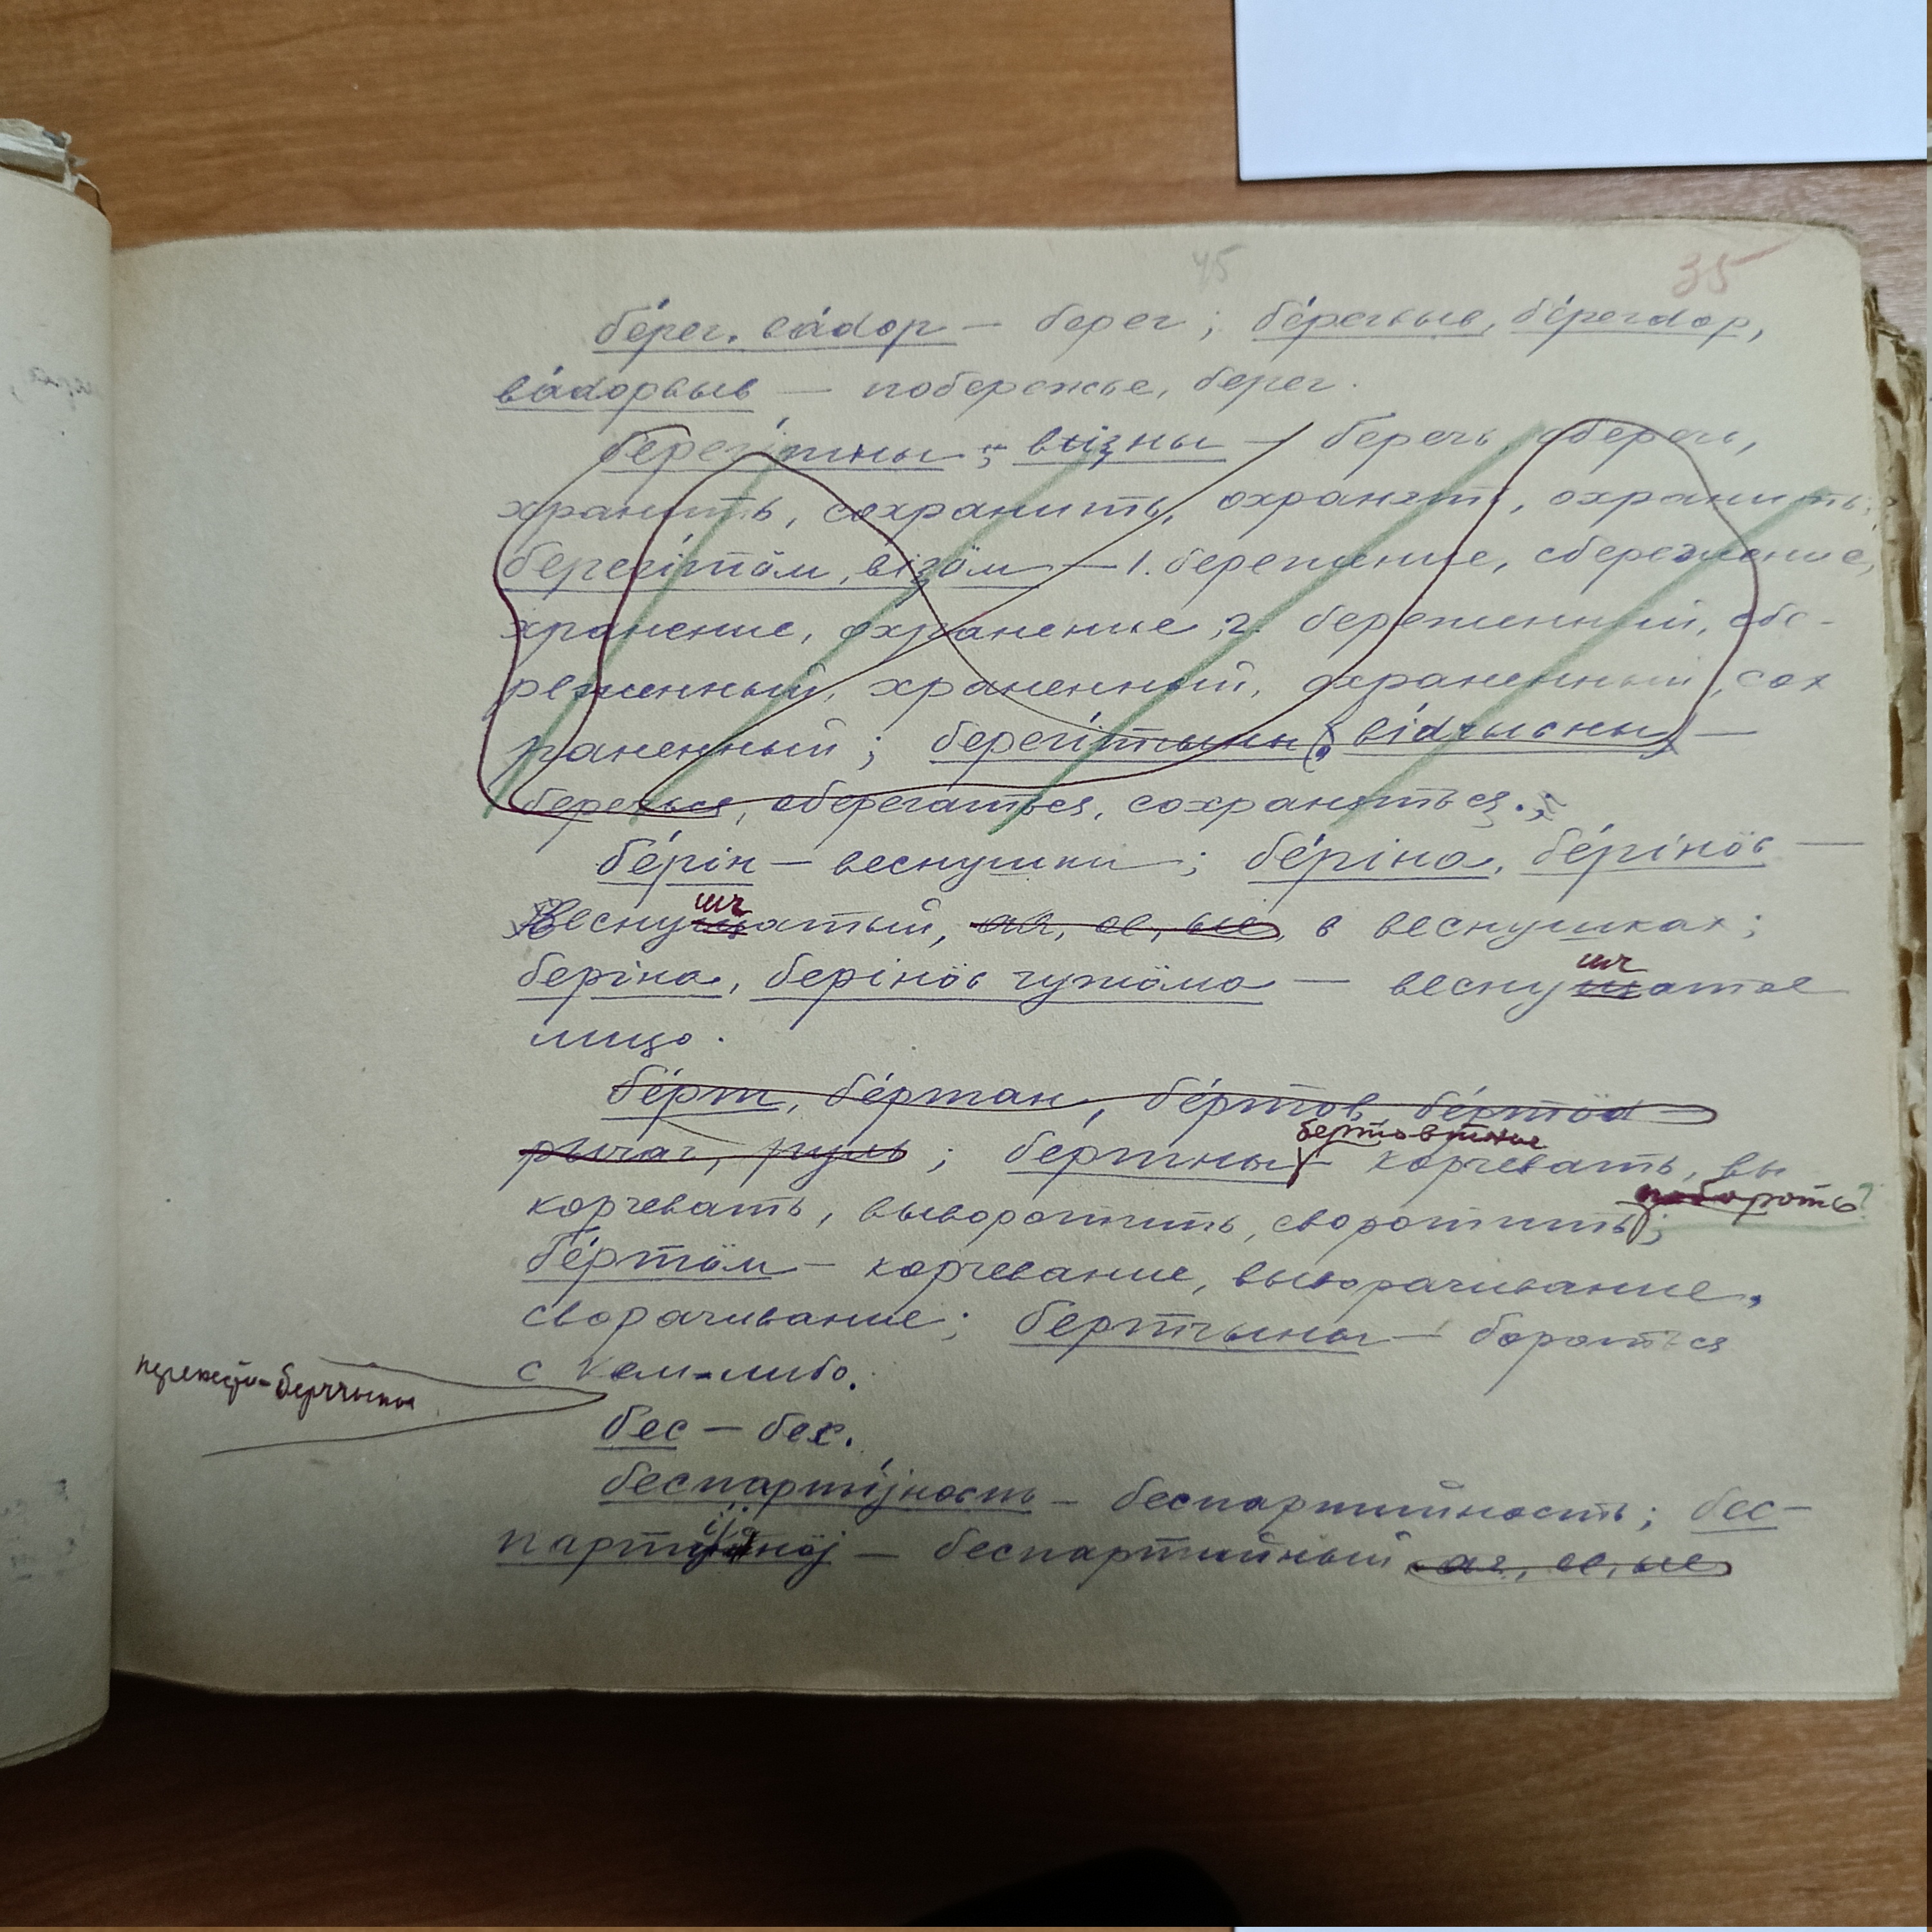 45 35
бе́рег, ва́дор — берег; бе́регвыв, бе́регдор,
ва́дорвыв — побережье, берег.
берегі́тны; візны — беречь, сберечь,
хранить, сохранить, охранять, охранить;
берегі́тӧм, візӧм — 1. бережение, сбережение,
хранение, охранение, 2. береженный, сбе-
реженный, храненный, охраненный, сох
раненный; берегі́тчыны, ві́дчысны —
беречься, оберегаться, сохраняться.
бе́рін — веснушки; бе́ріна, бе́рінӧс —
веснущатый, ая, ое, ые, в веснушках;
шч
беріна, берінӧс чужӧма — веснущатое
шч
лицо.
бе́рт, бе́ртан, бе́ртов, бе́ртӧд —
рычаг, руль; бе́ртны — корчевать, вы
бертовтны
корчевать, выворотить, своротить;
побороть?
бе́ртӧм — корчевание, выворачивание,
сворачивание; бертчыны — бороться
с кем-либо.
берччыны
бес — бес.
беспарті́јность — беспартийность; бес-
партіјнӧј — беспартийный, ая, ое, ые